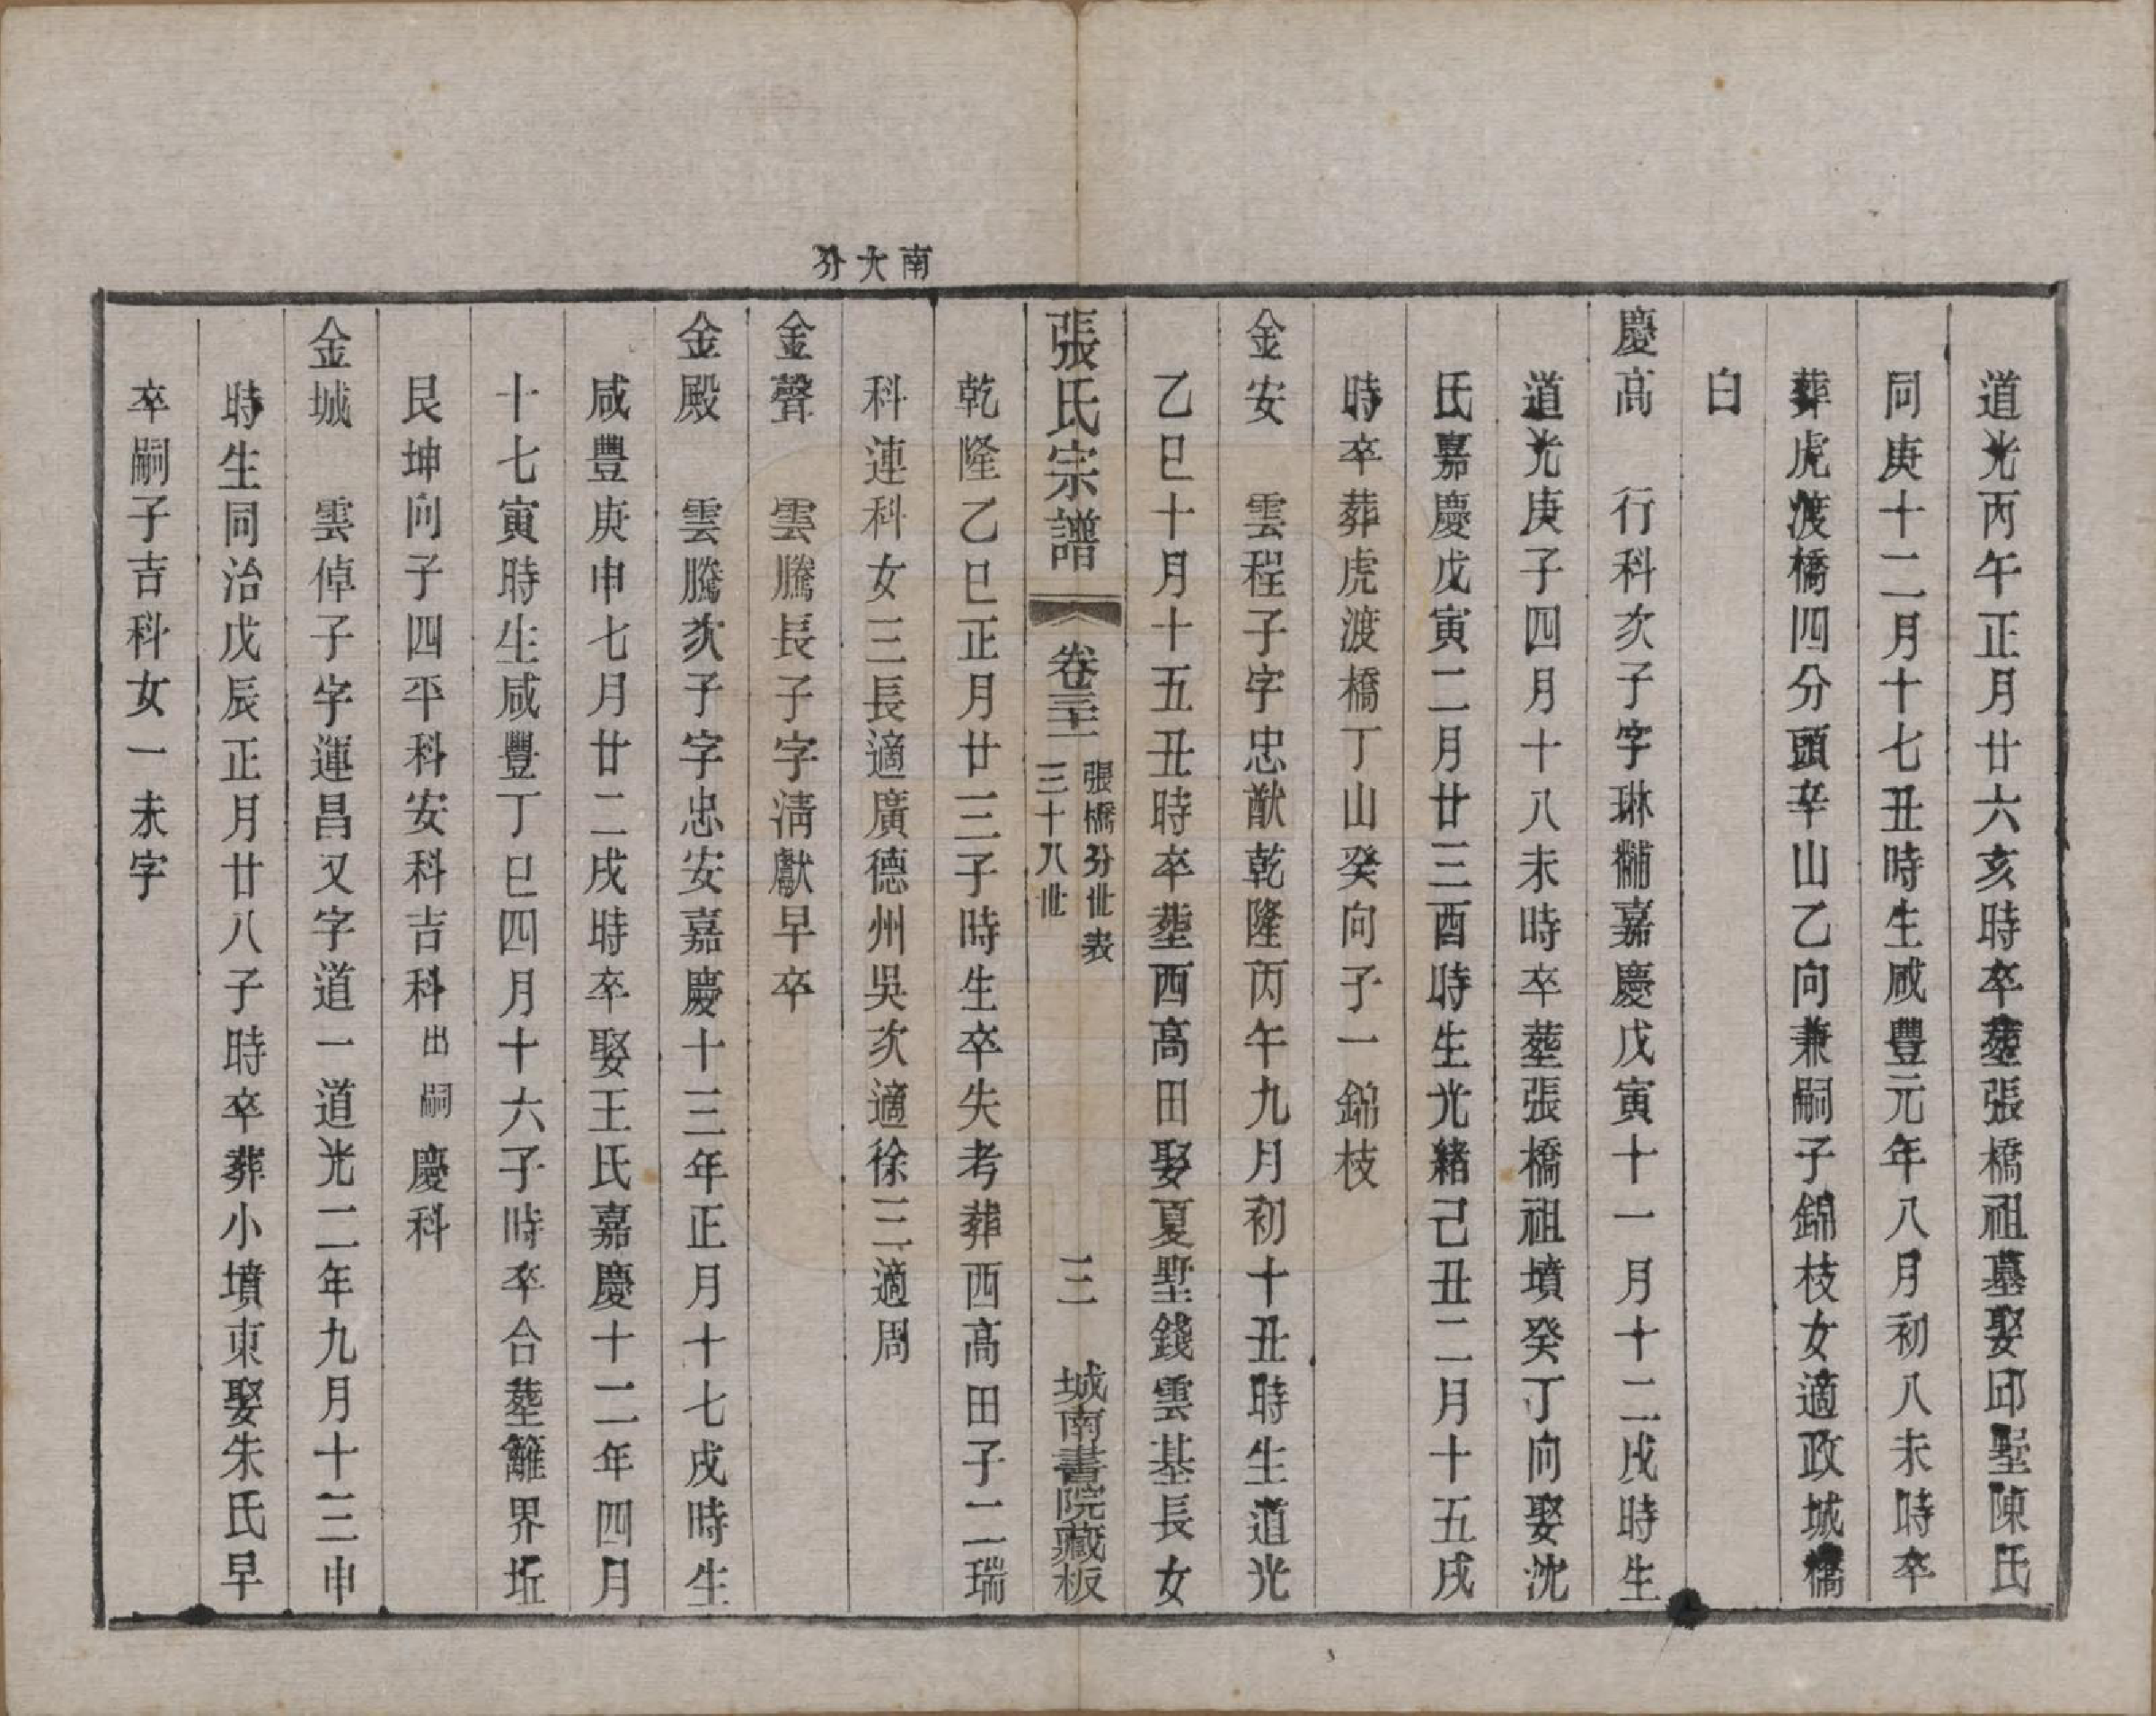 道光丙午正月廿六亥時卒塟張橋祖墓娶邱墅陳氏
同庚十二月十七丑時生咸豐元年八月初八未時卒
葬虎渡橋四分頭辛山乙向兼嗣子錦枝女適政城橋
白
慶高 行科次子字琳黼嘉慶戊寅十一月十二戌時生
道光庚子四月十八未時卒塟張橋祖墳癸丁向娶沈
氏嘉慶戊寅二月廿三酉時生光緒己丑二月十五戌
時卒葬虎渡橋丁山癸向子一錦枝
金安 雲程子字忠猷乾隆丙午九月初十丑時生道光
乙巳十月十五丑時卒塟西高田娶夏墅錢雲基長女
張氏宗譜 卷三十二 張橋分世表 三十八世 三 城南書院藏板
南大分
乾隆乙巳正月廿三子時生卒失考葬西高田子二瑞
科連科女三長適廣德州吳次適徐三適周
金聲 雲騰長子字淸獻早卒
金殿 雲騰次子字忠安嘉慶十三年正月十七戌時生
咸豐庚申七月廿二戌時卒娶王氏嘉慶十二年四月
十七寅時生咸豐丁巳四月十六子時卒合塟籬界坵
艮坤向子四平科安科吉科出嗣慶科
金城 雲倬子字運昌又字道一道光二年九月十三申
時生同治戊辰正月廿八子時卒葬小墳東娶朱氏早
卒嗣子吉科女一未字